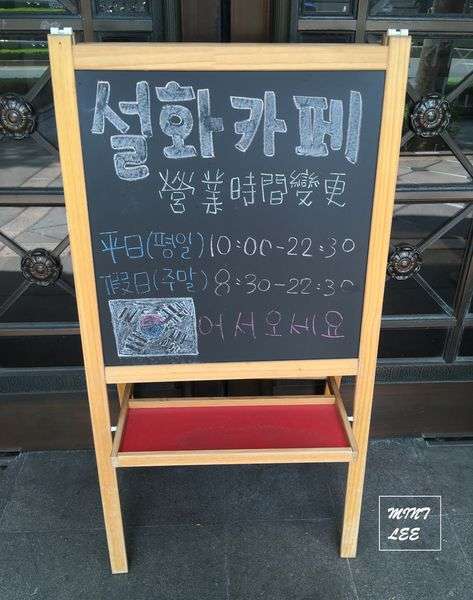 설화카페
營業時間變更
平日(평일)10:00-22:30
假日(주말)8:30-22:30
어서오세요
MINT
LEE